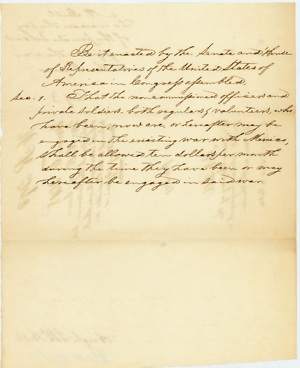 Be it enacted by the Senate and House
of Representatives of the United States of
America in Congress assembled
Sec. 1. That the non commissioned officers and
private soldiers both regulars & volunteers, who
have been, now are, or hereafter may be
engaged in the existing war with Mexico,
shall be allowed ten dollars per month
during the time they have been or may
hereafter be engaged in said war